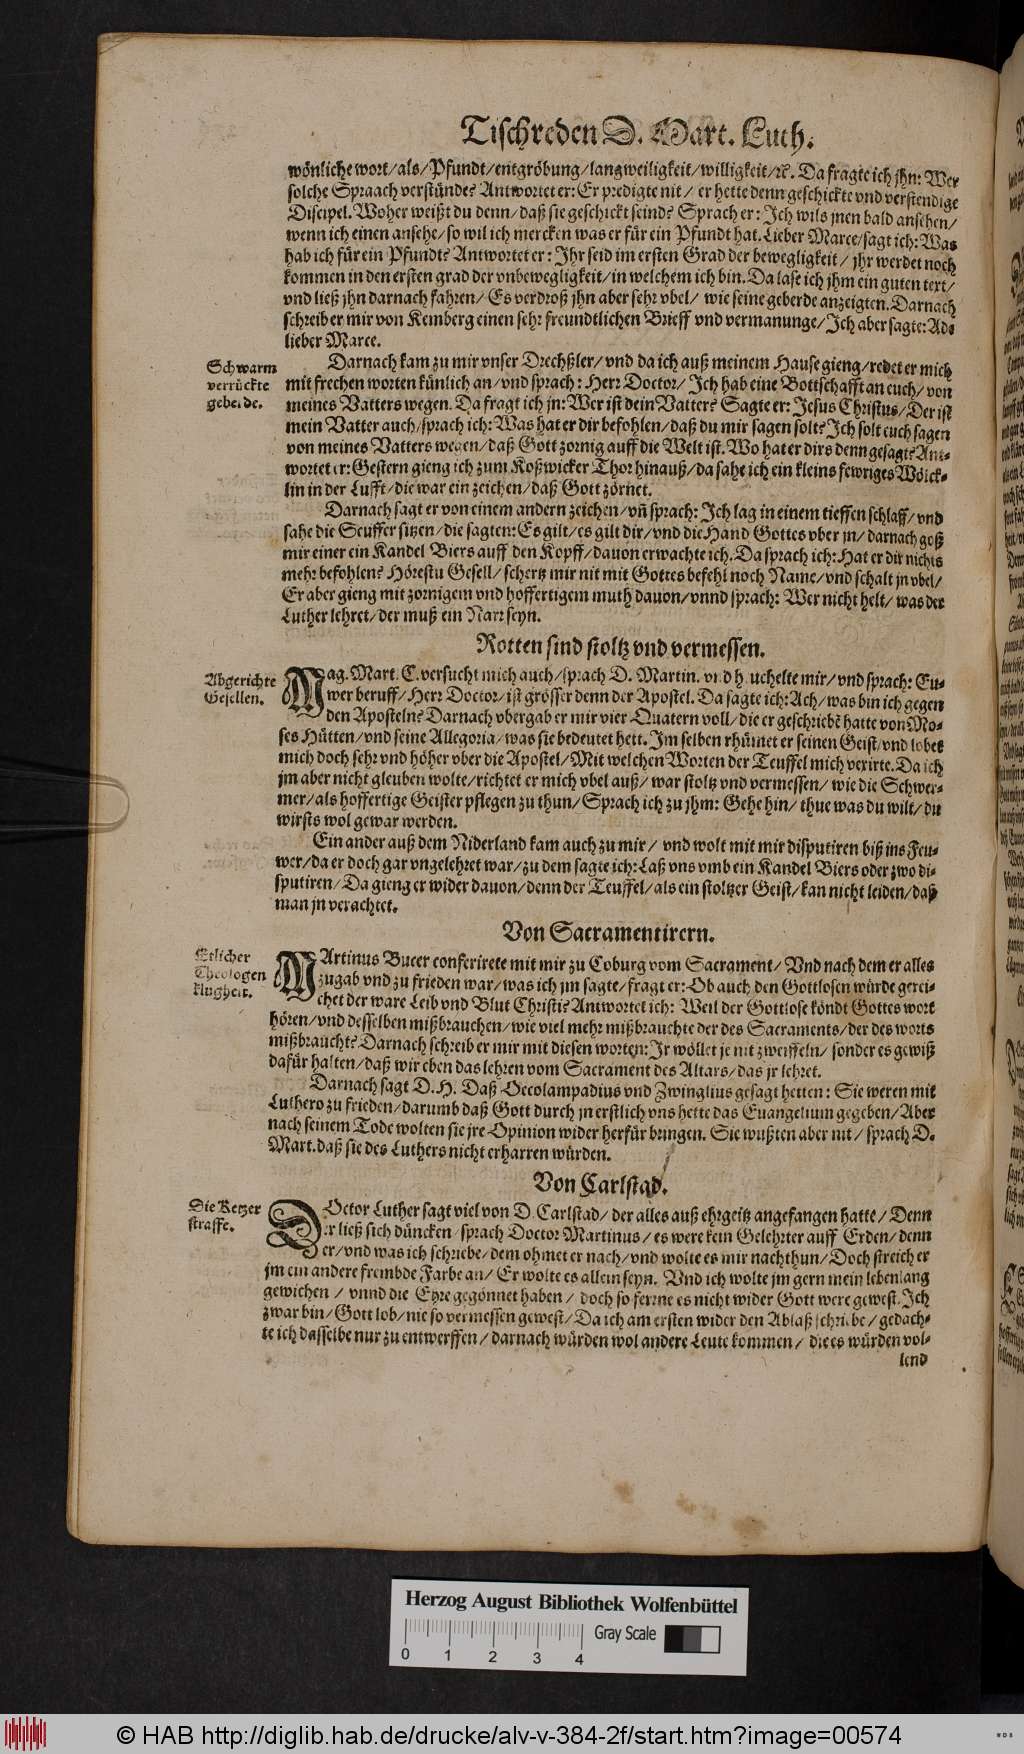 Tischreden D. Mart. Luth.
wönliche wort/als/Pfundt/entgröbung/langweiligkeit/willigkeit/ꝛc. Da fragte ich jhn: Wer
solche Spraach verstünde? Antwortet er: Er predigte nit/ er hette denn geschickte vnd verstendige
Discipel. Woher weißt du denn/daß sie geschickt seind? Sprach er: Ich wils jnen bald ansehen/
wenn ich einen ansehe/so wil ich mercken was er für ein Pfundt hat. Lieber Marce/sagt ich: Was
hab ich für ein Pfundt? Antwortet er: Ihr seid im ersten Grad der bewegligkeit/ jhr werdet noch
kommen in den ersten grad der vnbewegligkeit/in welchem ich bin. Da lase ich jhm ein guten text/
vnd ließ jhn darnach fahren/ Es verdroß jhn aber sehr vbel/ wie seine geberde anzeigten. Darnach
schreib er mir von Kemberg einen sehr freundtlichen Brieff vnd vermanunge/Ich aber sagte: Ade
lieber Marce.
Schwarm
verrückte
geberde.
Darnach kam zu mir vnser Drechßler/vnd da ich auß meinem Hause gieng/redet er mich
mit frechen worten künlich an/vnd sprach: Herr Doctor/ Ich hab eine Bottschafft an euch/von
meines Vatters wegen. Da fragt ich jn: Wer ist dein Vatter? Sagte er: Jesus Christus/Der ist
mein Vatter auch/sprach ich: Was hat er dir befohlen/daß du mir sagen solt? Ich solt euch sagen
von meines Vatters wegen/daß Gott zornig auff die Welt ist. Wo hat er dirs denn gesagt? Ant-
wortet er: Gestern gieng ich zum Koßwicker Thor hinauß/da sahe ich ein kleins fewriges Wölck-
lin in der Lufft/die war ein zeichen/daß Gott zörnet.
Darnach sagt er von einem andern zeichen/vñ sprach: Ich lag in einem tieffen schlaff/vnd
sahe die Seuffer sitzen/die sagten: Es gilt/es gilt dir/vnd die Hand Gottes vber jn/darnach goß
mir einer ein Kandel Biers auff den Kopff/dauon erwachte ich. Da sprach ich: Hat er dir nichts
mehr befohlen? Hörestu Gesell/schertz mir nit mit Gottes befehl noch Name/vnd schalt jn vbel/
Er aber gieng mit zornigem vnd hoffertigem muth dauon/vnnd sprach: Wer nicht helt/was der
Luther lehret/der muß ein Narr seyn.
Rotten sind stoltz vnd vermessen.
Abgerichte
Gesellen.
Mag. Mart. C. versucht mich auch/sprach D. Martin. vnd heuchelte mir/vnd sprach: Eu-
wer beruff/Herr Doctor/ist grösser denn der Apostel. Da sagte ich: Ach/was bin ich gegen
den Aposteln? Darnach vbergab er mir vier Quatern voll/die er geschriebẽ hatte von Mo-
ses Hütten/vnd seine Allegoria/was sie bedeutet hett. Im selben rhümet er seinen Geist/vnd lobet
mich doch sehr vnd höher vber die Apostel/Mit welchen Worten der Teuffel mich vexirte. Da ich
jm aber nicht gleuben wolte/richtet er mich vbel auß/ war stoltz vnd vermessen/ wie die Schwer-
mer/als hoffertige Geister pflegen zu thun/Sprach ich zu jhm: Gehe hin/ thue was du wilt/du
wirsts wol gewar werden.
Ein ander auß dem Niderland kam auch zu mir/ vnd wolt mit mir disputiren biß ins Feu-
wer/da er doch gar vngelehret war/zu dem sagte ich: Laß vns vmb ein Kandel Biers oder zwo di-
sputiren/Da gieng er wider dauon/denn der Teuffel/als ein stoltzer Geist/kan nicht leiden/daß
man jn verachtet.
Von Sacramentirern.
Etlicher
Theologen
klugheit.
MArtinus Bucer conferirete mit mir zu Coburg vom Sacrament/ Vnd nach dem er alles
zugab vnd zu frieden war/was ich jm sagte/fragt er: Ob auch den Gottlosen würde gerei-
chet der ware Leib vnd Blut Christi? Antwortet ich: Weil der Gottlose köndt Gottes wort
hören/vnd desselben mißbrauchen/wie viel mehr mißbrauchte der des Sacraments/der des worts
mißbraucht? Darnach schreib er mir mit diesen worten: Ir wöllet je nit zweiffeln/ sonder es gewiß
dafür halten/daß wir eben das lehren vom Sacrament des Altars/das jr lehret.
Darnach sagt D. H. Daß Oecolampadius vnd Zwinglius gesagt hetten: Sie weren mit
Luthero zu frieden/darumb daß Gott durch jn erstlich vns hette das Euangelium gegeben/Aber
nach seinem Tode wolten sie jre Opinion wider herfür bringen. Sie wußten aber nit/ sprach D.
Mart. daß sie des Luthers nicht erharren würden.
Von Carlstad.
Die Ketzer
straffe.
DOctor Luther sagt viel von D. Carlstad/ der alles auß ehrgeitz angefangen hatte/ Denn
er ließ sich düncken/sprach Doctor Martinus/ es were kein Gelehrter auff Erden/denn
er/vnd was ich schriebe/dem ohmet er nach/vnd wolte es mir nachthun/Doch streich er
jm ein andere frembde Farbe an/ Er wolte es allein seyn. Vnd ich wolte jm gern mein lebenlang
gewichen / vnnd die Ehre gegönnet haben/ doch so ferrne es nicht wider Gott were gewest. Ich
zwar bin/Gott lob/nie so vermessen gewest/Da ich am ersten wider den Ablaß schriebe/ gedach-
te ich dasselbe nur zu entwerffen/darnach würden wol andere Leute kommen/ die es würden vol-
lend
Herzog August Bibliothek Wolfenbüttel
Gray Scale
0 1 2 3 4
© HAB http://diglib.hab.de/drucke/alv-v-384-2f/start.htm?image=00574